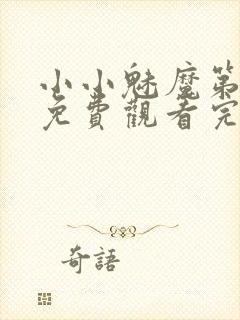 小小魅魔第
免費觀看完
奇語